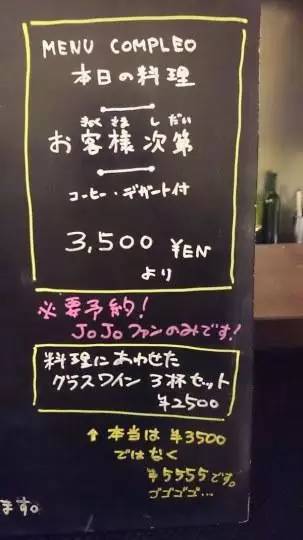 MENU COMPLEO
本日の料理
きゃくさま しだい
お客様次第
コーヒー・デザート付
3,500 ¥EN
より
※要予約!
JoJoファンのみです!
料理にあわせた
グラスワイン 3杯セット
¥2500
↑ 本当は ¥3500
ではなく
¥5555です。
ゴゴゴゴ...
ます。